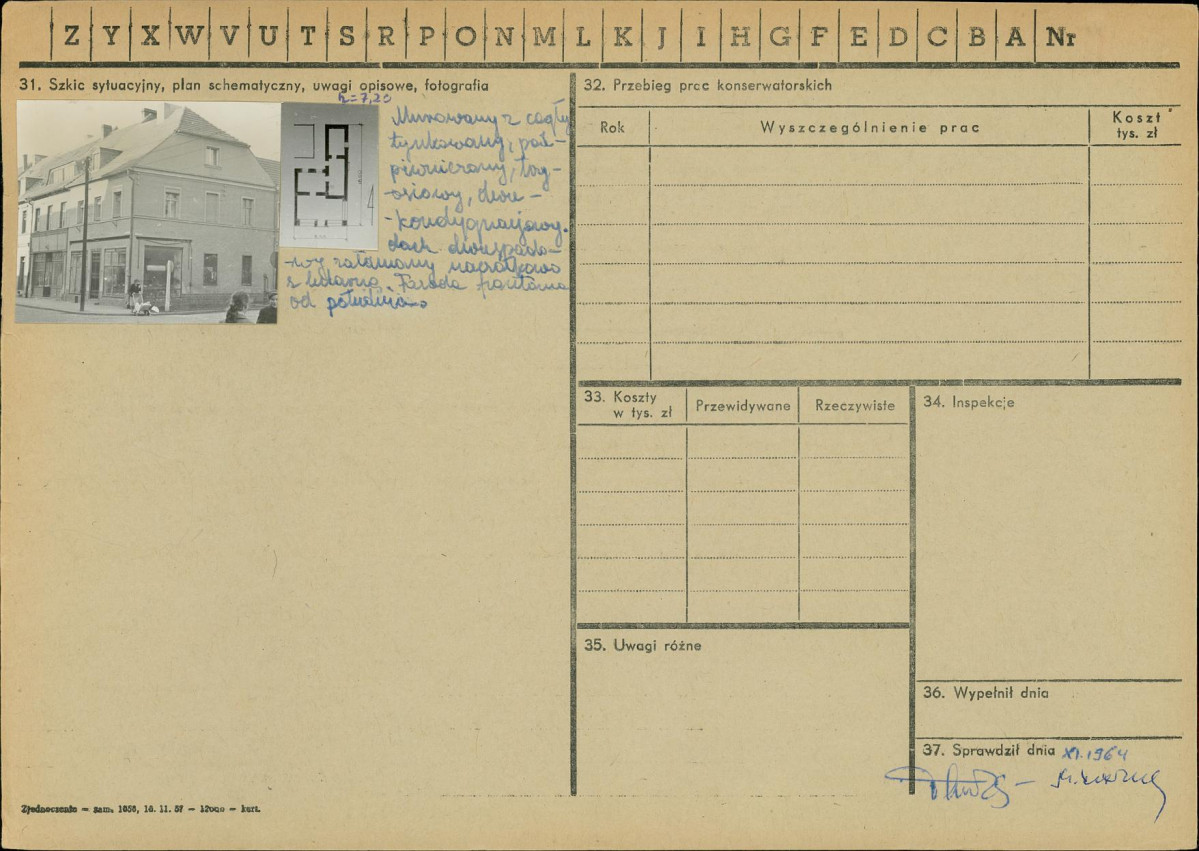 Z Y X W V U T S R P O N M L K J I H G F E D C B A Nr
31. Szkic sytuacyjny, plan schematyczny, uwagi opisowe, fotografia
h=7,20
Murowany z cegły
tynkowany, pod-
piwniczony, trzy-
osiowy, dwu-
-kondygnacyjowy.
dach dwuspado-
-wy
z lukarną. Fasada frontowa
od południa
32. Przebieg prac konserwatorskich
Rok
Wyszczególnienie prac
Koszt
tys. zł
33. Koszty
w tys. zł
Przewidywane
Rzeczywiste
34. Inspekcje
35. Uwagi różne
36. Wypełnił dnia
37. Sprawdził dnia XI.1964
Zjednoczenie – zam. 1658, 16. 11. 57 – 12000 – kart.